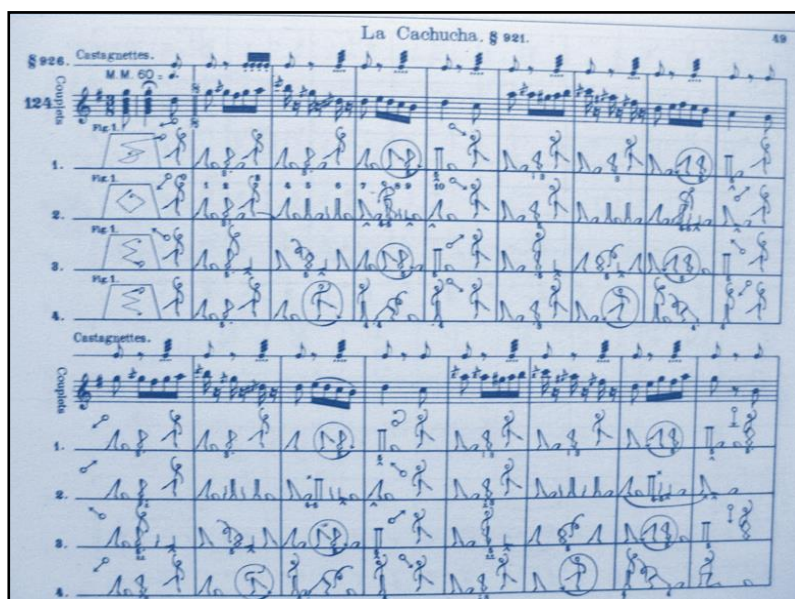 La Cachucha. § 921. 49
§ 926. Castagnettes.
M. M. 60 =
124.
Couplets
Fig. 1.
1.
Fig. 1.
1 2 3 4 5 6 7 8 9 10
2.
Fig. 1.
3.
Fig. 1.
4.
Castagnettes.
Couplets
1.
2.
3.
4.